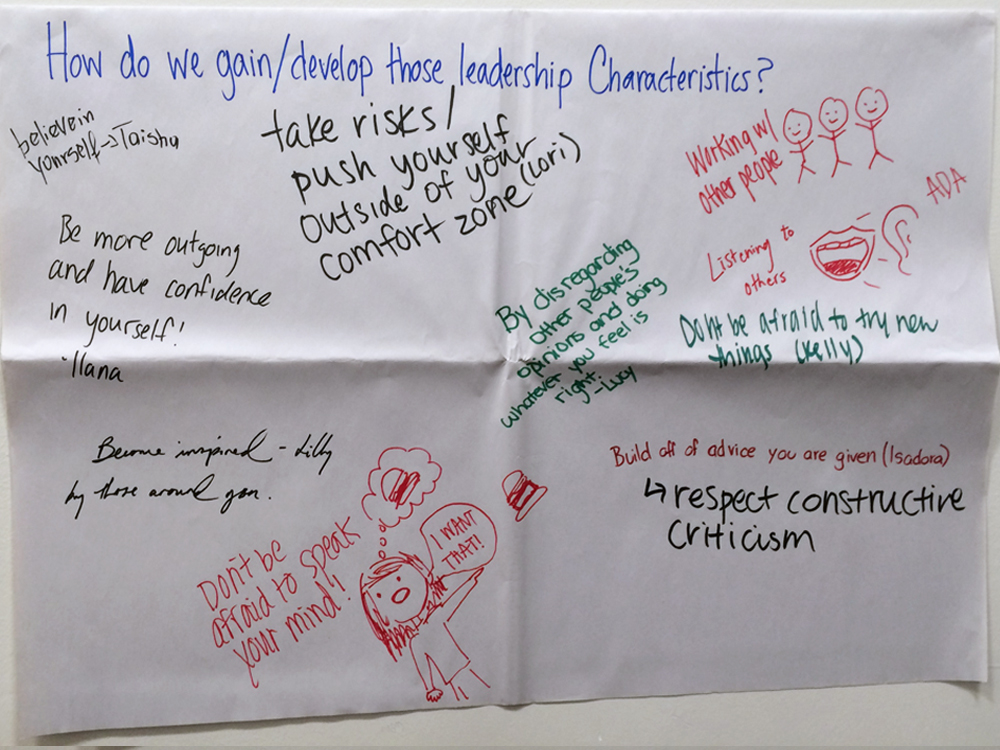 How do we gain/develop those leadership Characteristics?
believe in
yourself → Taisha
take risks/
push yourself
outside of your
comfort zone (Lori)
Working w/
other people
ADA
Listening to
others
Be more outgoing
and have confidence
in yourself!
Ilana
By disregarding
other people's
opinions and doing
whatever you feel is
right.
-Lucy
Don't be afraid to try new
things (Kelly)
Become inspired - Lilly
by those around you.
Build off of advice you are given (Isadora)
↳ respect constructive
criticism
Don't be
afraid to speak
your mind!
I WANT
THAT!